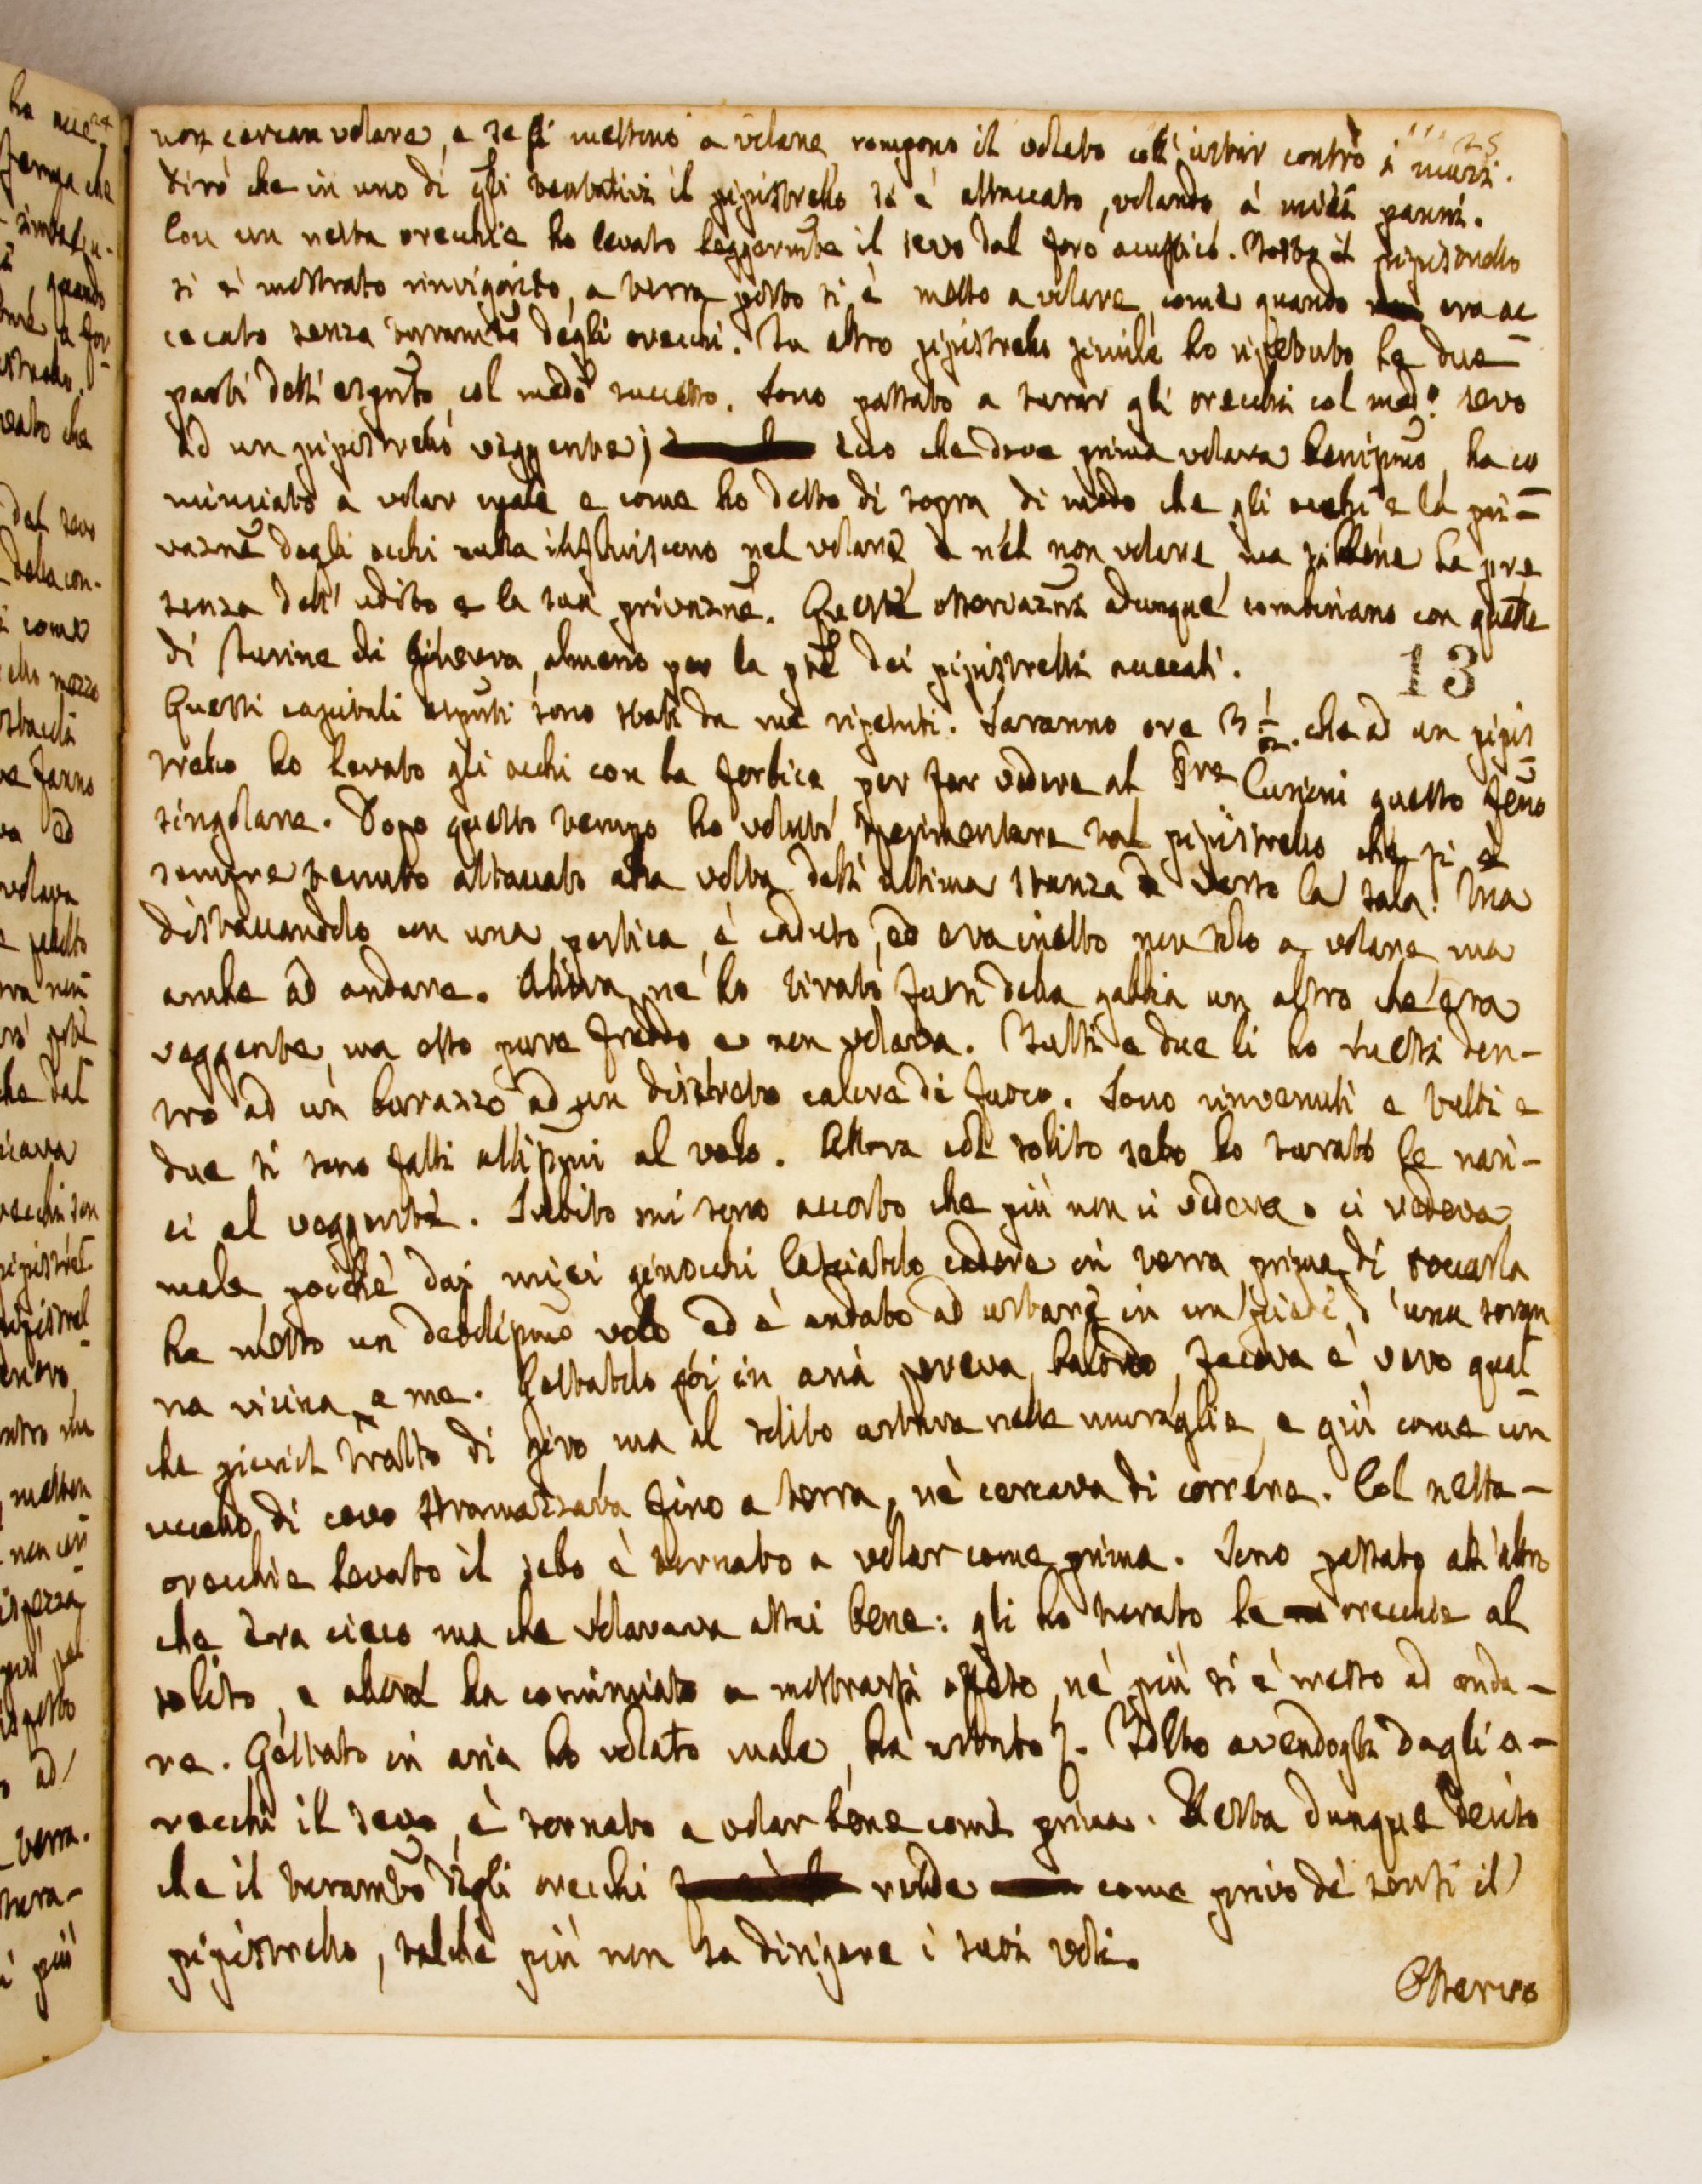 non cercan volare, e se si mettono a volare rompono il volato coll'urtar contro i muri.
Dirò che in uno di qsti tentativi il pipistrello si è attaccato, volando, a miei panni.
Con un netta orecchie ho levato leggermte il sevo dal foro acustico. Tosto il pipistrello
si è mostrato rinvigorito, a terra posto si è messo a volare, come quando era ac
cecato senza turamto degli orecchi. In altro pipistrello simile ho ripetuto le due
parti dell'esprto, col medo successo. Sono passato a turar gli orecchi col medo sevo
ad un pipistrello veggente; ecco che dove prima volava benissimo, ha co
minciato a volar male e come ho detto di sopra, di modo che gli occhi e la pri-
vazne degli occhi nulla influiscono nel volare, e nel non volare, ma sibbene la pre
senza dell'udito e la sua privazne. Queste osservazni adunque combinano con quelle
di Jurine di Ginevra, almeno per la pte dei pipistrelli acceccati.
13
Questi capitali esprti sono stati da me ripetuti. Saranno ore 3 1/2. che ad un pipis
trello ho levato gli occhi con la forbice, per far vedere al Sre Cusini questo feno
singolare. Dopo questo tempo ho voluto sperimentare tal pipistrello che si è
sempre tenuto attaccato alla volta dell'ultima stanza verso la sala. Ma
distaccandolo con una pertica, è caduto, ed era inetto non solo a volare, ma
anche ad andare. Allora ne ho tirato fuori della gabbia un altro che era
veggente, ma esso pure freddo e non volava. Tutti e due li ho messi den-
tro ad un barazzo ad un discreto calore di fuoco. Sono rinvenuti e tutti e
due si sono fatti attissmi al volo. Allora col solito sebo ho turato le nari-
ci al veggente. Subito mi sono accorto che più non ci vedeva o ci vedeva
male, poichè dai miei ginocchi lasciatolo cadere in terra, prima di toccarla
ha messo un debolissmo volo ed è andato ad urtare in un piede d'una scran
na vicina a me. Gettatolo poi in aria pareva balordo, faceva è vero qual
che picciol tratto di giro, ma al solito urtava nelle muraglie, e giù come un
uccello di covo stramazzava fino a terra, nè cercava di correre. Col netta-
orecchie levato il sebo è tornato a volar come prima. Sono passato all'altro
che era cieco ma che volavava assai bene: gli ho turato le orecchie al
solito, e allora ha cominciato a mostrarsi offeso, nè più si è messo ad anda-
re. Gettato in aria ha volato male, ha urtato &. Tolto avendogli dagli o-
recchi il sevo, è tornato a volar bene come prima. Resta dunque deciso
che il turamto degli orecchi rende come privo de' sensi il
pipistrello, talchè più non sa dirigere i suoi voli.
Osservo